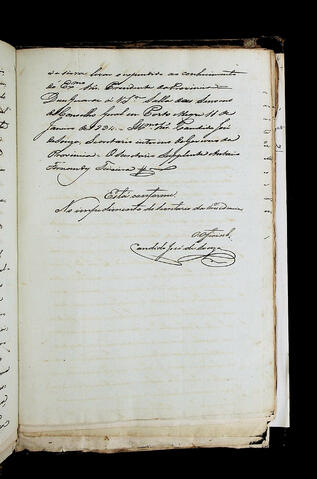 levar o expendido ao conhecimento
do Exmo Snr. Presidente da Provincia
Deus Guarde a VSa. Salla das Sessoens
do Conselho Geral em Porto Alegre 11 de
Janeiro de 1831 - Snr. Candido José
de Souza, Secretario interino do Governo da
Provincia - O Secretario Supplente Antonio
Fernandes Teixeira
Está conforme
No impedimento do Secretario da
O Official
Candido José de Souza